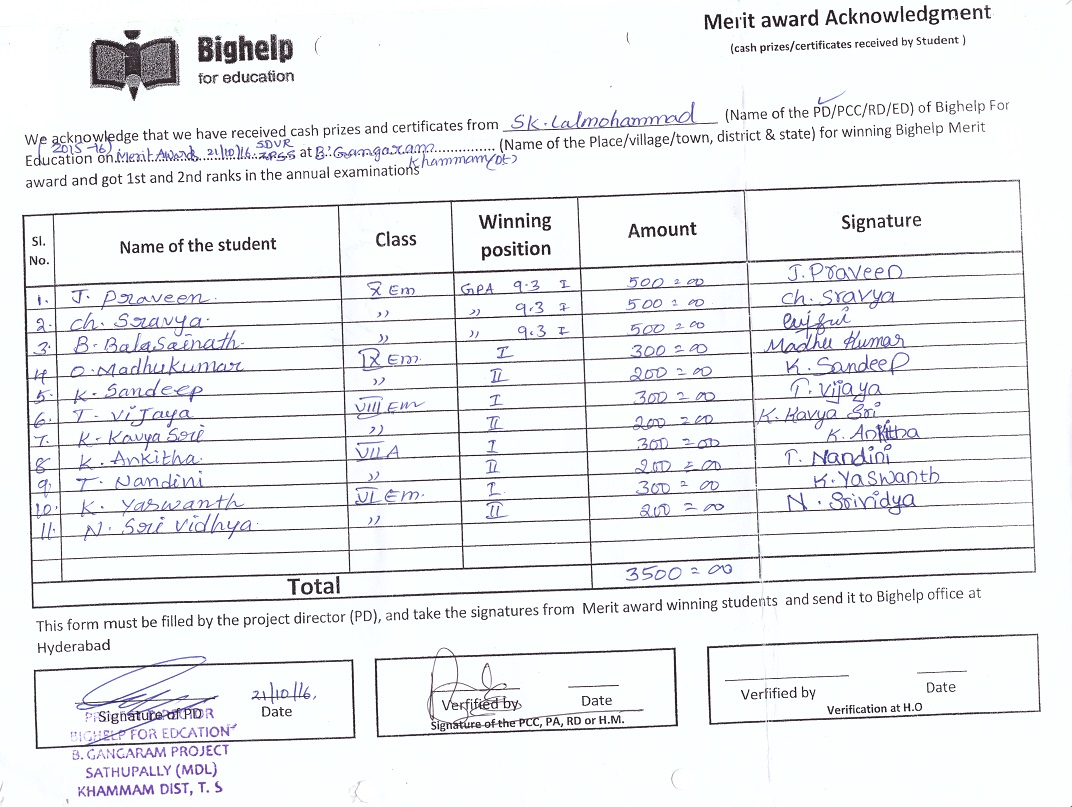 Bighelp
for education
Merit award Acknowledgment
(cash prizes/certificates received by Student )
We acknowledge that we have received cash prizes and certificates from SK. Lalmohammad (Name of the PD/PCC/RD/ED) of Bighelp For
(2015-16) SDVR
Education on Merit Award 21/10/16 ZPSS at B. Gangaram (Name of the Place/village/town, district & state) for winning Bighelp Merit
Khammam (Dt)
award and got 1st and 2nd ranks in the annual examinations
Sl. No. Name of the student Class Winning position Amount Signature
1. J. Praveen X Em GPA 9.3 I 500 = 00 J. Praveen
2. Ch. Sravya ,, ,, 9.3 I 500 = 00 Ch. Sravya
3. B. BalaSainath ,, ,, 9.3 I 500 = 00
4 O. Madhukumar IX Em I 300 = 00 Madhu Kumar
5. K. Sandeep ,, II 200 = 00 K. Sandeep
6. T. Vijaya VIII Em I 300 = 00 T. Vijaya
7. K. Kavya Sri ,, II 200 = 00 K. Kavya Sri
8 K. Ankitha VII A I 300 = 00 K. Ankitha
9. T. Nandini ,, II 200 = 00 T. Nandini
10. K. Yaswanth VI Em I 300 = 00 K. Yaswanth
11. N. Sri Vidhya ,, II 200 = 00 N. Srividya
Total 3500 = 00
This form must be filled by the project director (PD), and take the signatures from Merit award winning students and send it to Bighelp office at
Hyderabad
21/10/16.
Signature of PD Date
Verfified by Date
Signature of the PCC, PA, RD or H.M.
Verfified by Date
Verification at H.O
BIGHELP FOR EDCATION
B. GANGARAM PROJECT
SATHUPALLY (MDL)
KHAMMAM DIST, T. S